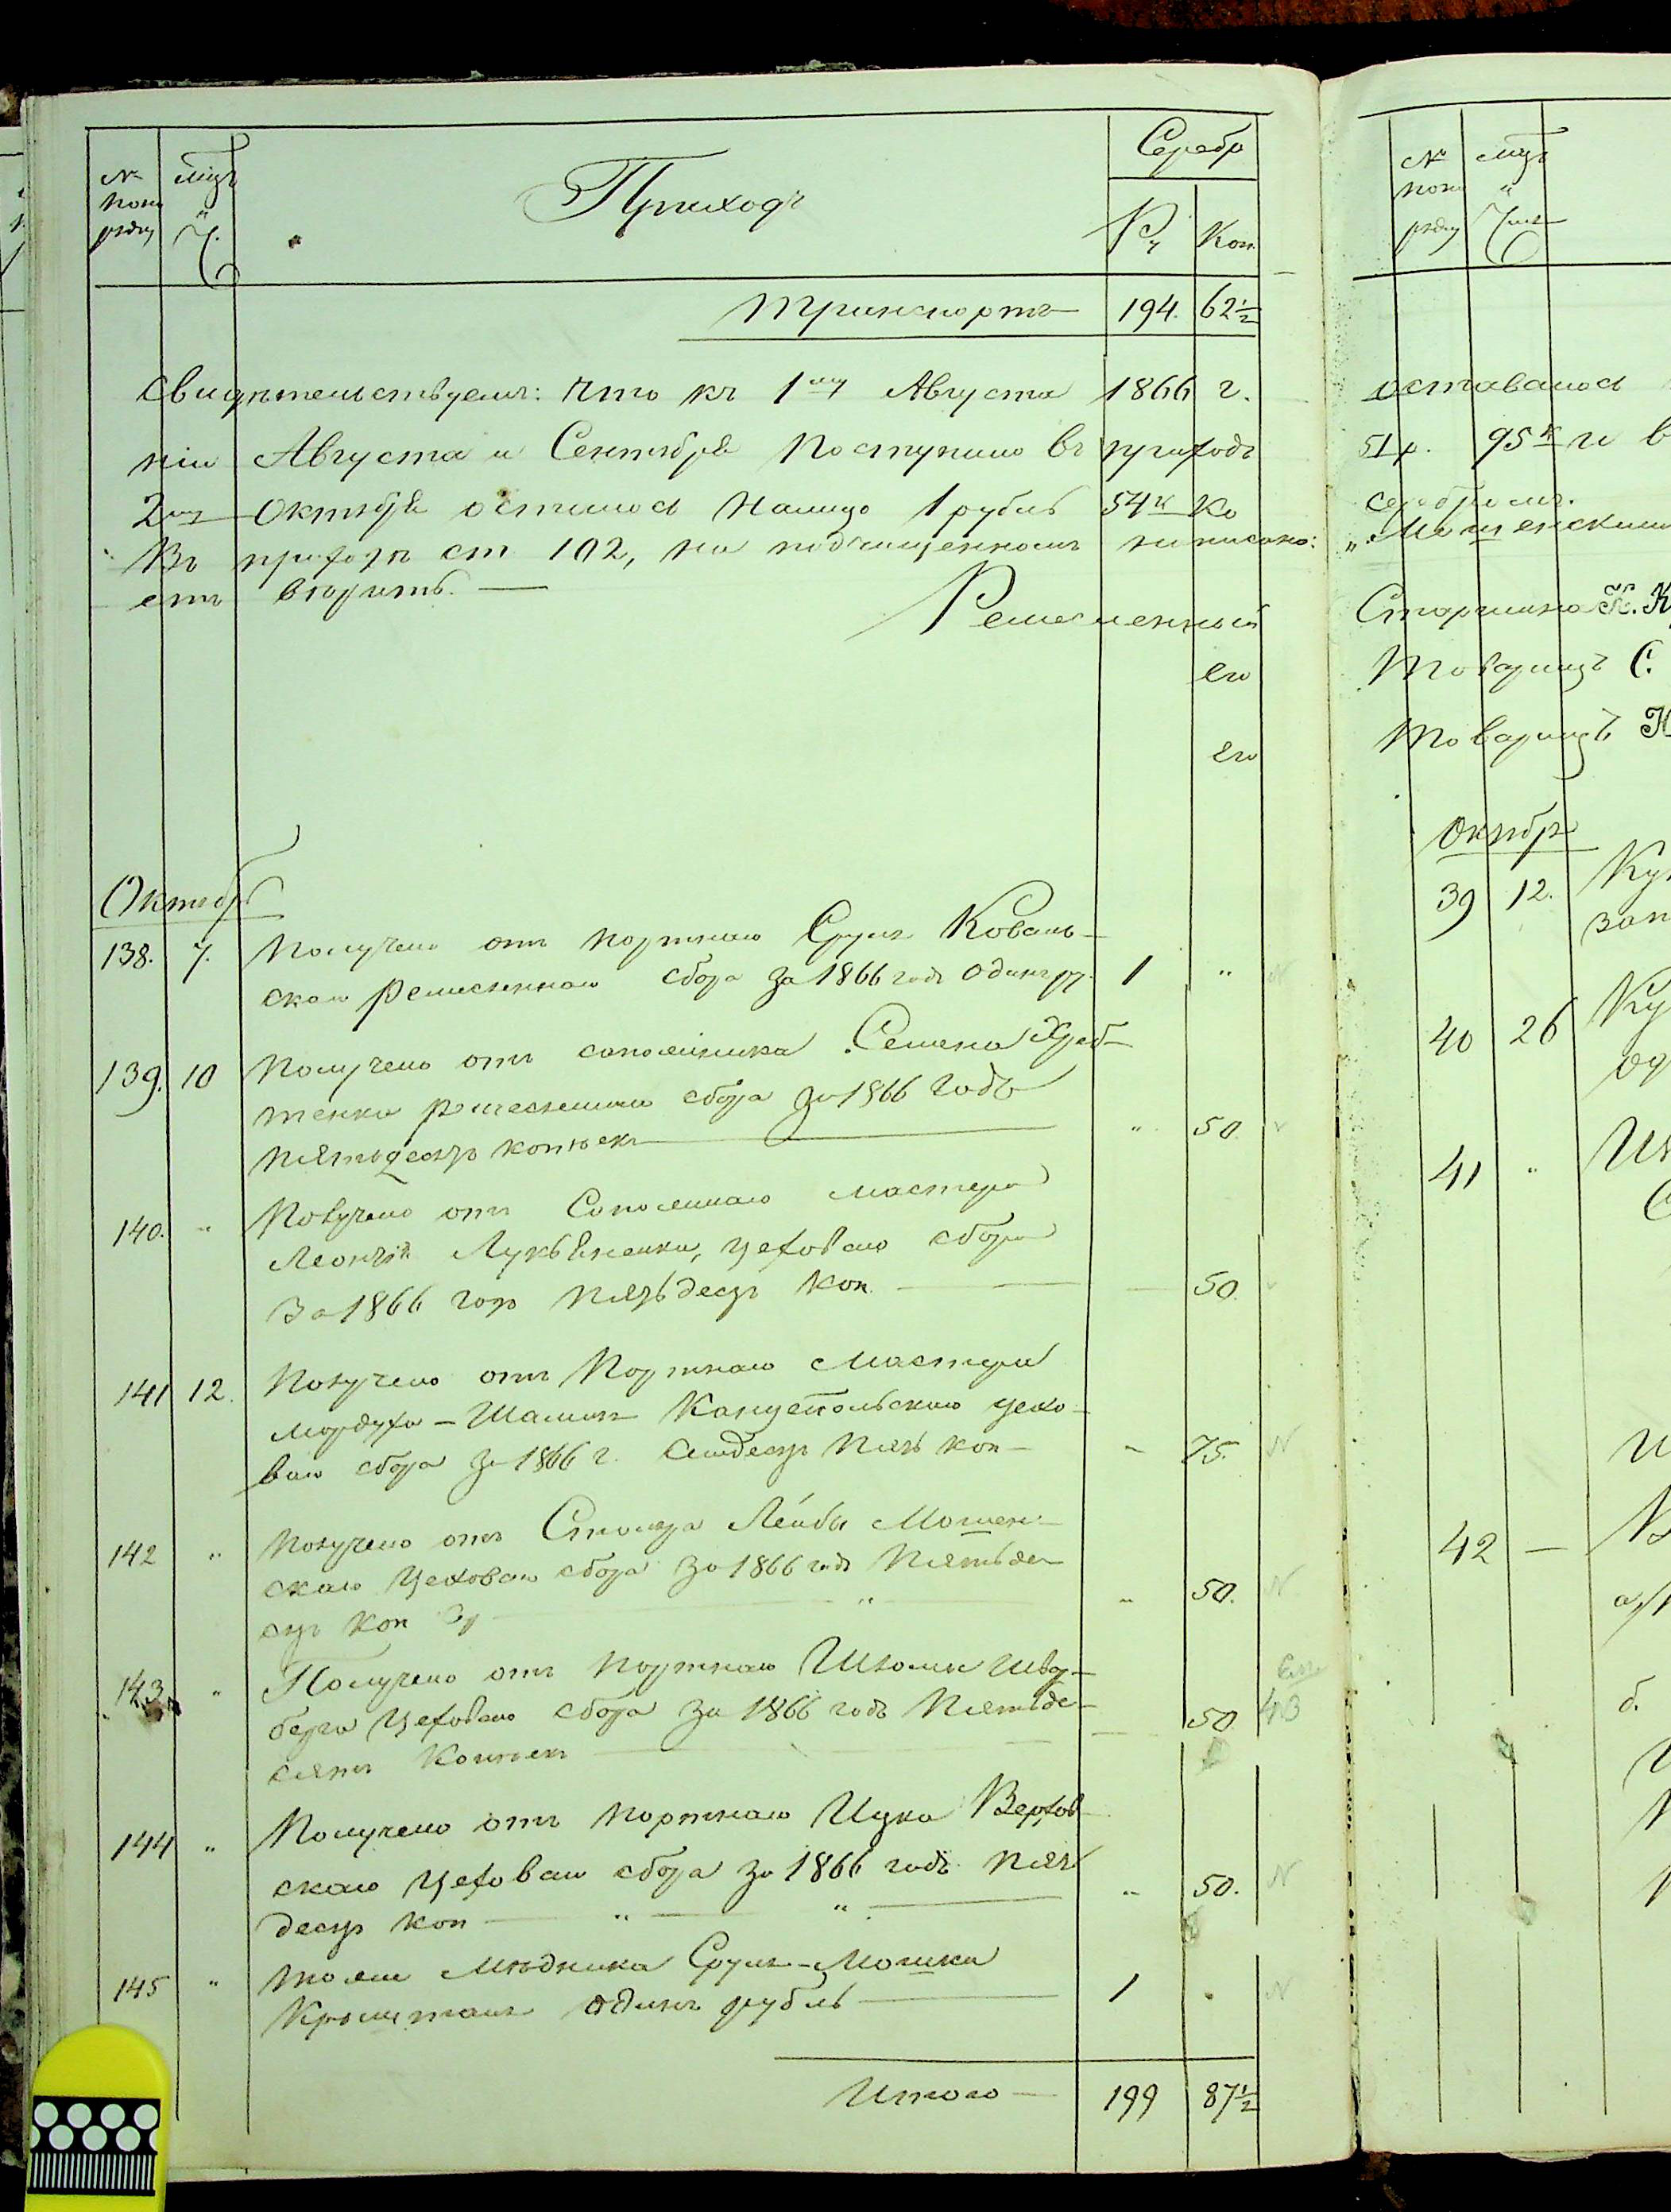 № поря рядку
Мѣц. и Ч.
Приходъ
Серебр
Ру
Коп.
Транспортъ 194. 62½
Свидѣтельствуемъ: что къ 1му Августа 1866 г.
ніи Августа и Сентября поступило въ приходъ
2му Октября осталось налицо 1 рубль 54¼ ко
Въ приходѣ ст 102, на подчищенномъ написано:
етъ вѣрить. —
Ремесленный
его
его
Октябрь
138. 7. Получено отъ портнаго Сруля Коваль-
скаго Ремесленнаго сбора за 1866 годъ Одинъ ру. 1 "
139. 10 Получено отъ сапожника Семена Хреб-
тенка ремесленнаго сбора за 1866 годъ
пятьдесятъ копѣекъ " 50.
140. " Получено отъ Сапожнаго мастера
Леонтія Лукьяненки, цеховаго сбора
За 1866 годъ пятьдесят коп. — 50.
141 12. Получено отъ Портнаго Мастера
Мордуха-Шалимъ Канцепольскаго цехо-
ваго сбора за 1866 г. Семдесят пять коп - 75.
142 " Получено отъ Столяра Лейбы Мошен-
скаго Цеховаго сбора за 1866 годъ Пятьде
сят коп " 50.
143. " Получено отъ портнаго Шломы Швар-
берга Цеховаго сбора за 1866 годъ Пятьде-
сятъ Копѣекъ — 50
144 " Получено отъ портнаго Ицка Верхов-
скаго Цеховаго сбора за 1866 годъ пять
десят коп " 50.
145 " Тоже Мѣдника Сруля-Мошка
одинъ рубль 1
Итого — 199 87½
№ поря рядку
Мѣц. " Числ
оставалось
51 р. 95 к и в
серебромъ.
"Мошенскимъ
Старшина К. К
Товарищъ С.
Товарищъ Н
Октябр
39 12. Ку
зап
40 26 Ку
од
41 "
42 —
б.